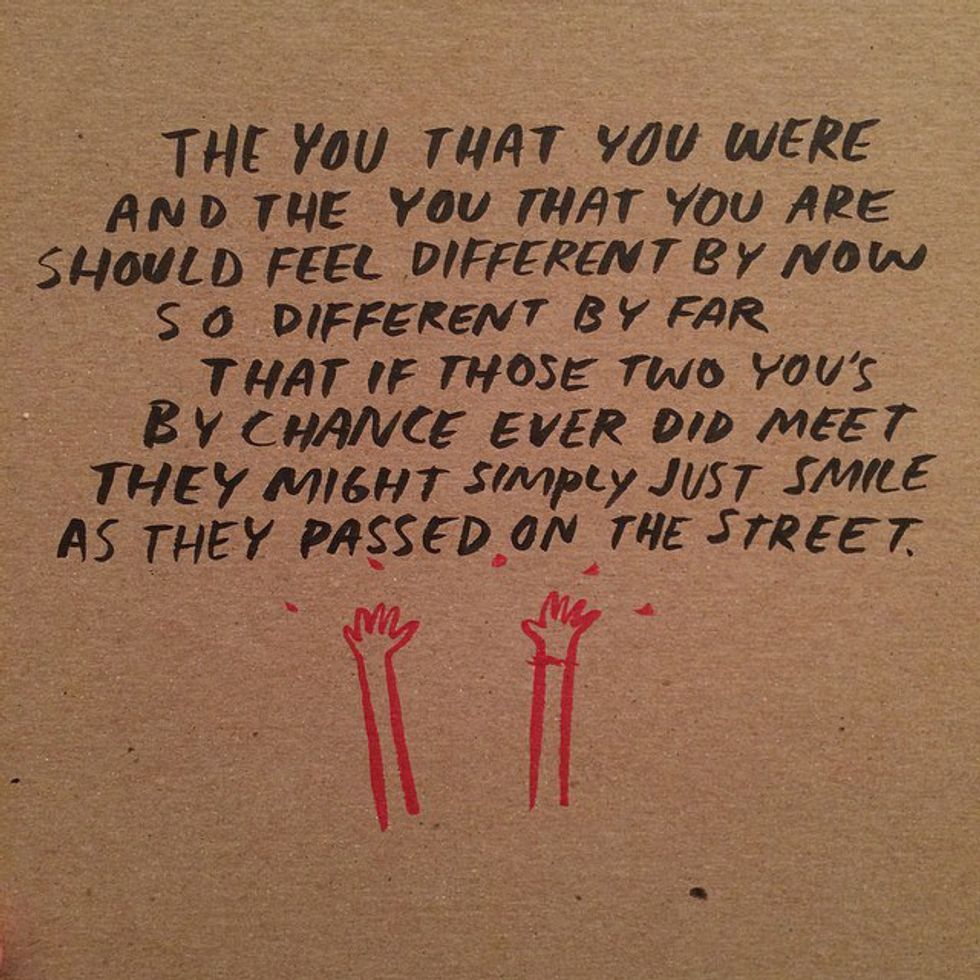 THE YOU THAT YOU WERE
AND THE YOU THAT YOU ARE
SHOULD FEEL DIFFERENT BY NOW
SO DIFFERENT BY FAR
THAT IF THOSE TWO YOU'S
BY CHANCE EVER DID MEET
THEY MIGHT SIMPLY JUST SMILE
AS THEY PASSED ON THE STREET.